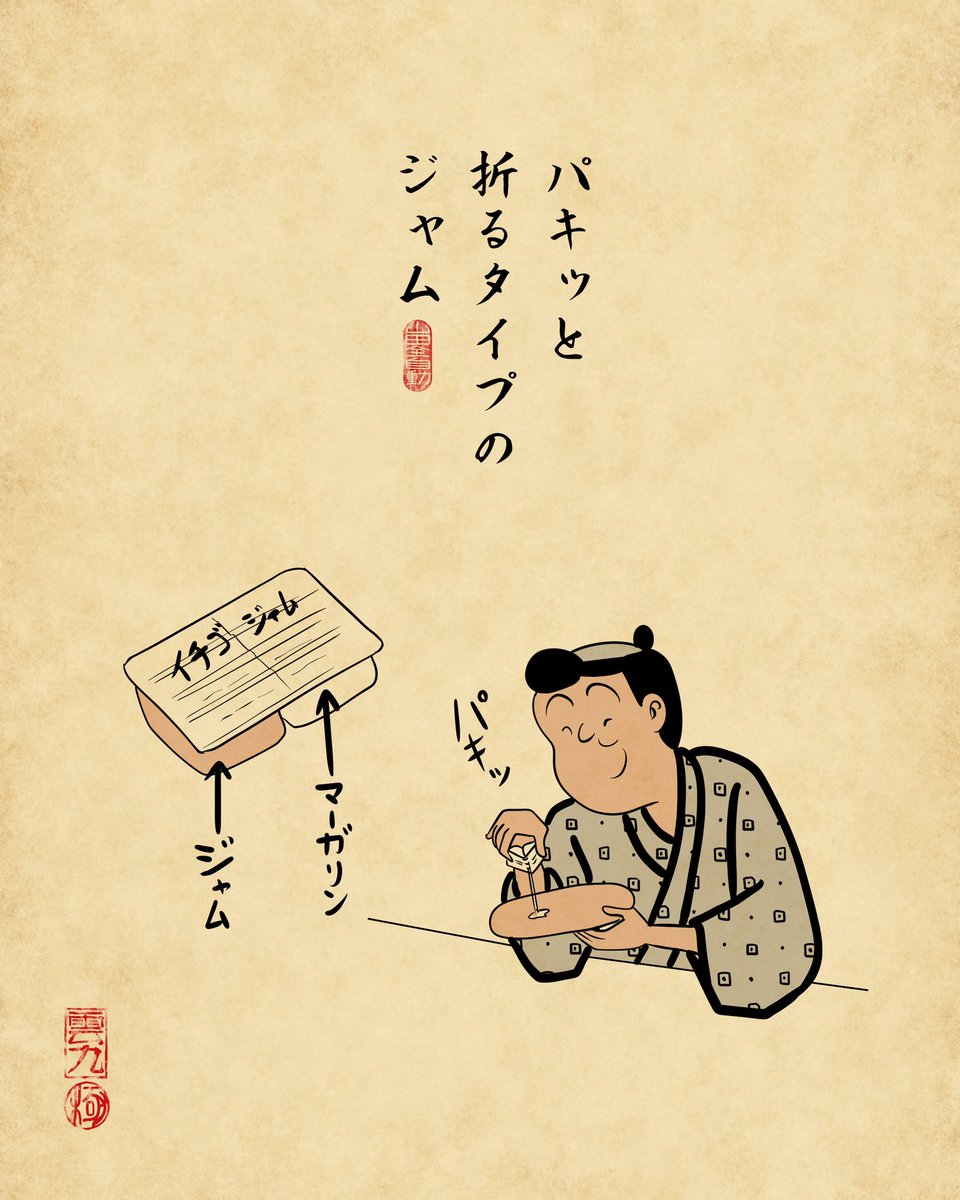 パキッと
折るタイプの
ジャム
イチゴジャム
マーガリン
ジャム
パキッ